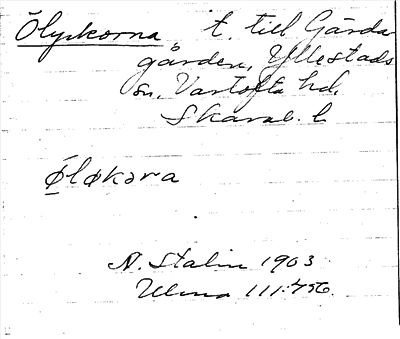 Ölyckorna t. till Gärda
gården, Yllestads
sn. Vartofta hd.
Skarab. l.
Øløkǝra
N. Stalin 1903
Ulma 111:456.